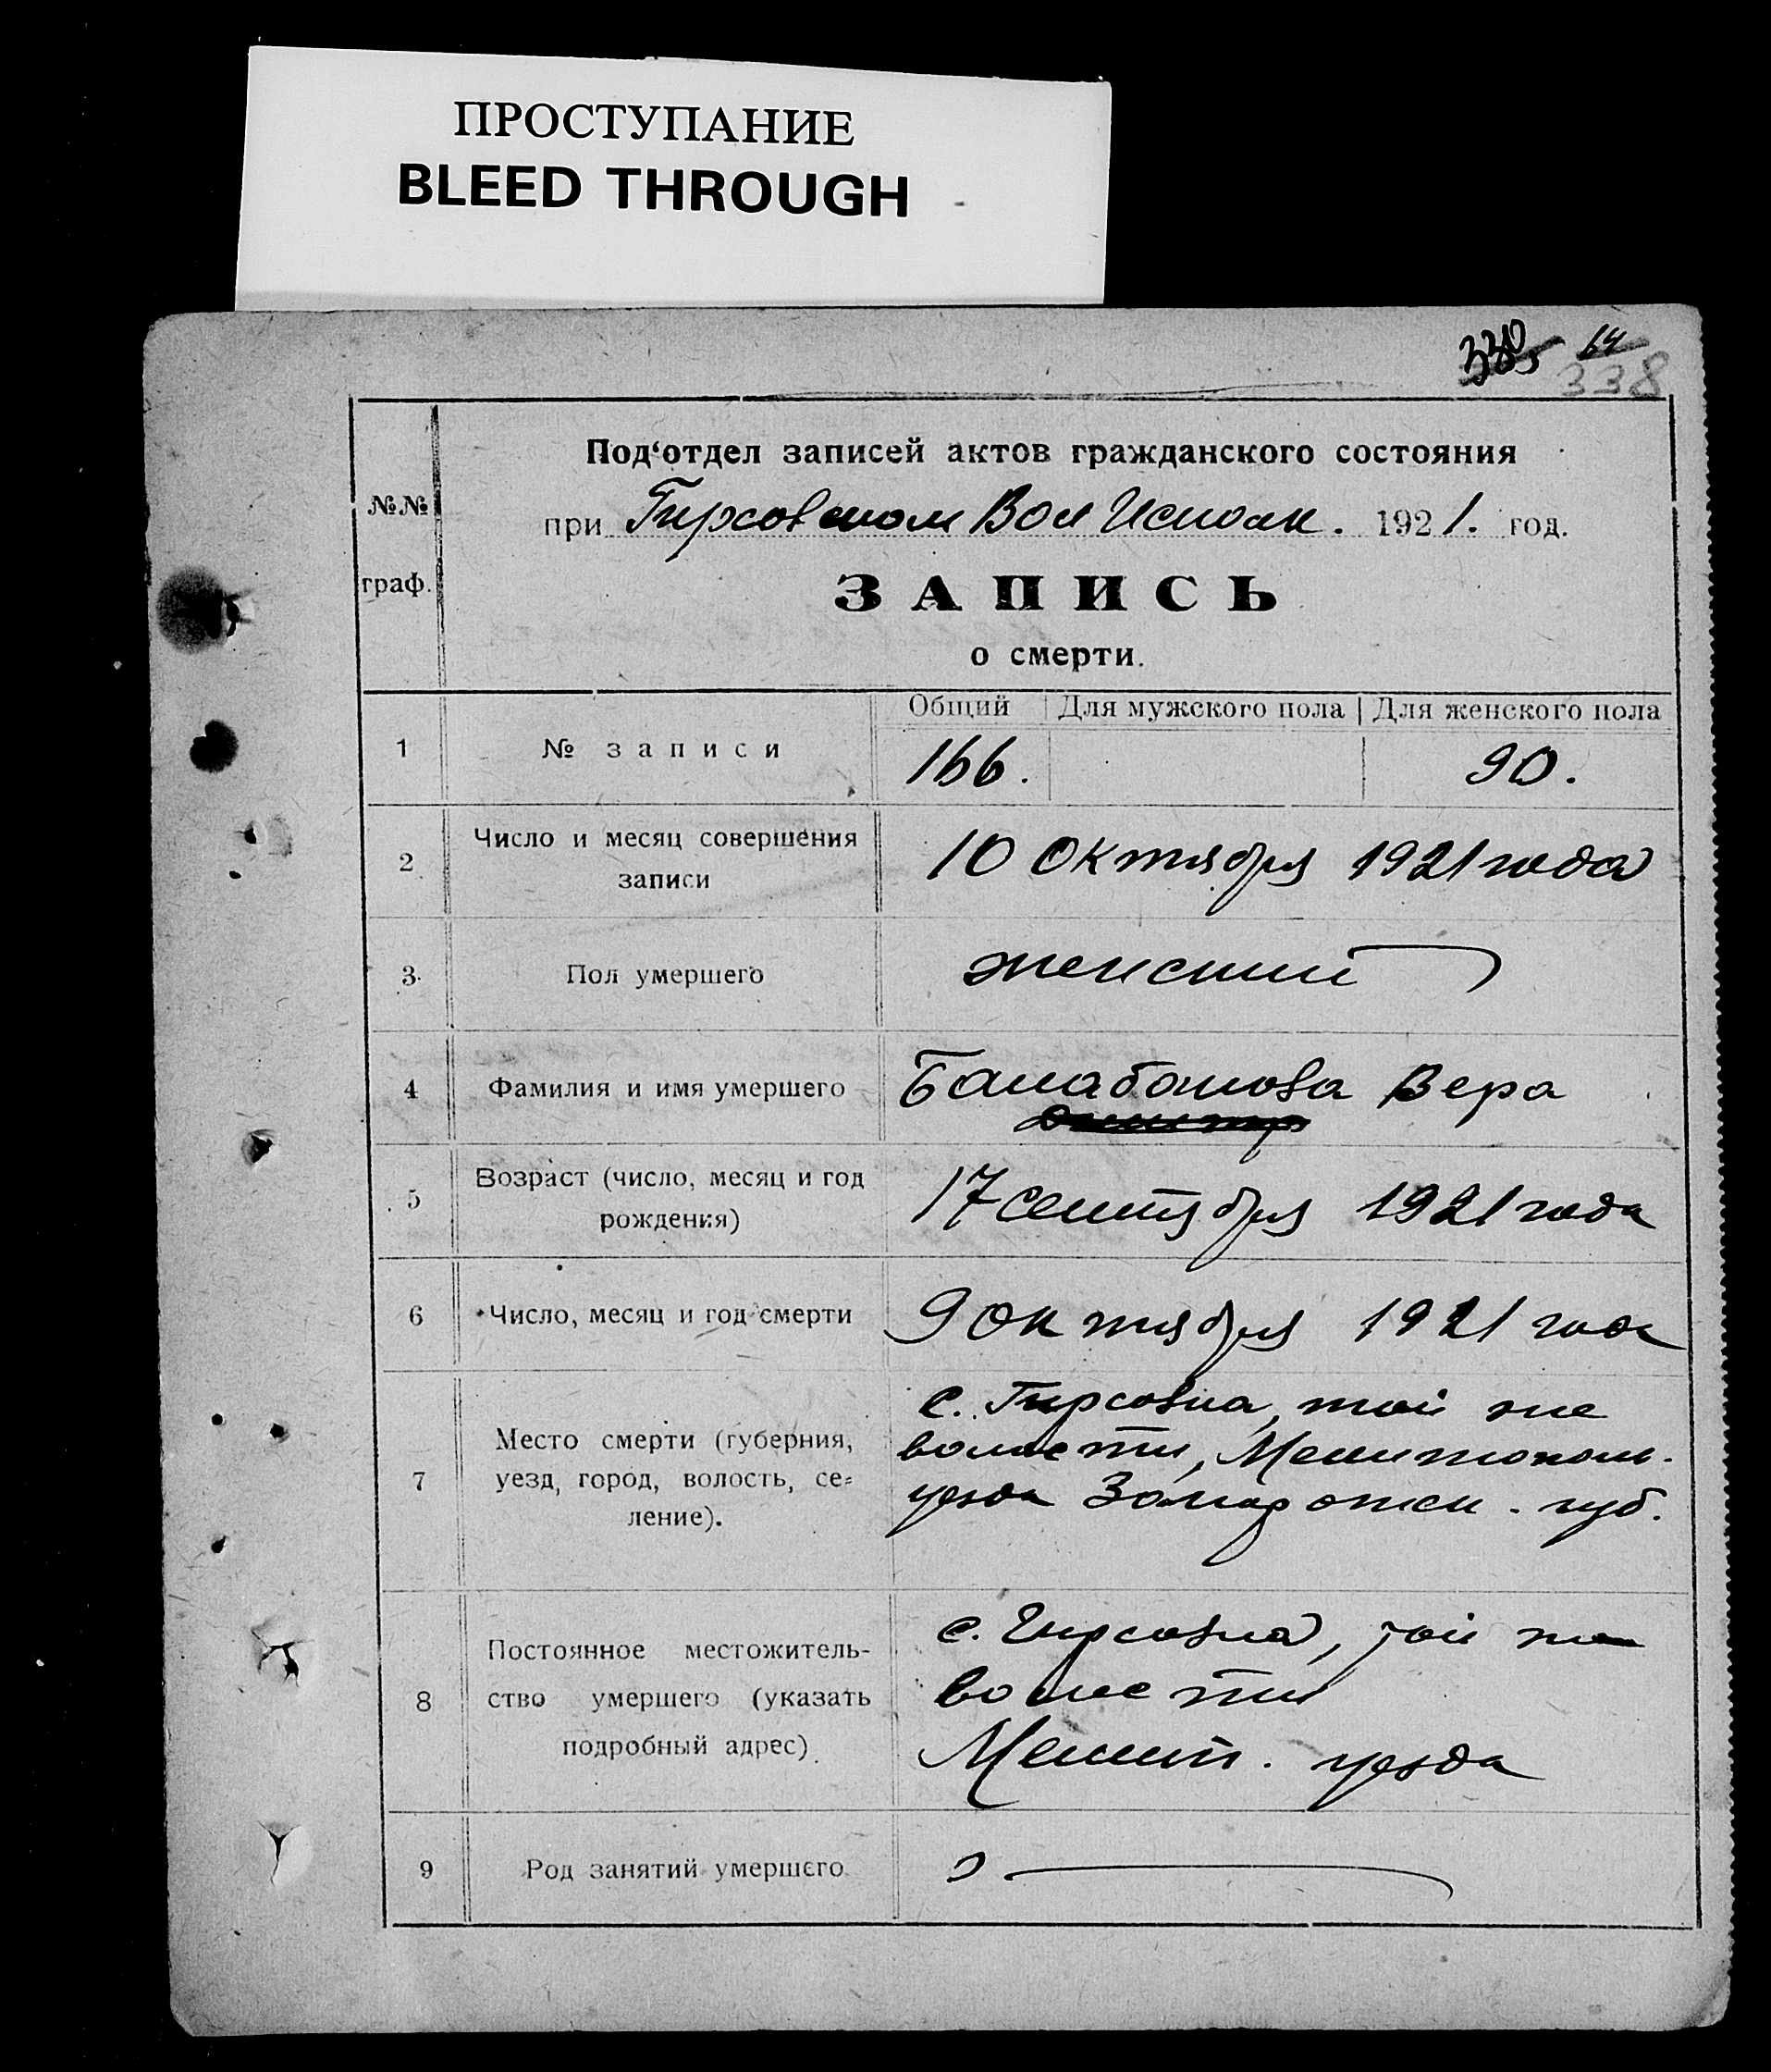 ПРОСТУПАНИЕ
BLEED THROUGH
64
338
Под‘отдел записей актов гражданского состояния
№№
при Гирсовском Вол Исполк. 1921. год.
граф.
ЗАПИСЬ
о смерти.
Общий Для мужского пола Для женского пола
1 № записи 166. 90.
2 Число и месяц совершения
записи
10 октября 1921 года
3 Пол умершего женский
4 Фамилия и имя умершего Балабанова Вера
5 Возраст (число, месяц и год
рождения)
17 сентября 1921 года
6 Число, месяц и год смерти 9 октября 1921 года
7 Место смерти (губерния,
уезд, город, волость, се-
ление).
с. Гирсовка, той же
волости, Мелитополь.
уезда Запорожск. губ.
8 Постоянное местожитель-
ство умершего (указать
подробный адрес)
с. Гирсовка, той же
волости
Мелит. уезда
9 Род занятий умершего